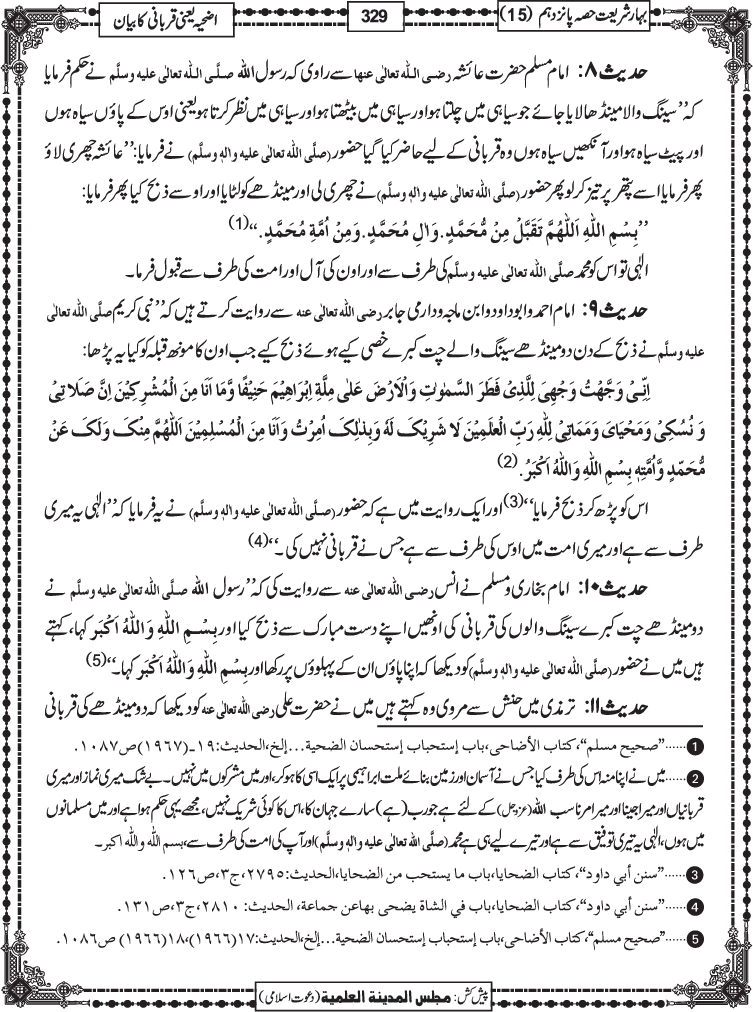 بہارِ شریعت حصہ پانزدہم (15)
329
اضحیہ یعنی قربانی کا بیان
حدیث ۸: امام مسلم حضرت عائشہ رضی اللہ تعالٰی عنھا سے راوی کہ رسول اللہ صلَّی اللہ تعالٰی علیہ وسلَّم نے حکم فرمایا
کہ ’’سینگ والا مینڈھا لایا جائے جو سیاہی میں چلتا ہو اور سیاہی میں بیٹھتا ہو اور سیاہی میں نظر کرتا ہو یعنی اوس کے پاؤں سیاہ ہوں
اور پیٹ سیاہ ہو اور آنکھیں سیاہ ہوں وہ قربانی کے لیے حاضر کیا گیا حضور (صلَّی اللہ تعالٰی علیہ والہٖ وسلَّم) نے فرمایا: ’’عائشہ چھری لاؤ
پھر فرمایا اسے پتھر پر تیز کر لو پھر حضور (صلَّی اللہ تعالٰی علیہ والہٖ وسلَّم) نے چھری لی اور مینڈھے کو لٹایا اور اوسے ذبح کیا پھر فرمایا:
’’بِسْمِ اللّٰہِ اَللّٰھُمَّ تَقَبَّلْ مِنْ مُّحَمَّدٍ۔ وَاٰلِ مُحَمَّدٍ۔ وَمِنْ اُمَّۃِ مُحَمَّدٍ۔‘‘ (1)
الٰہی تو اس کو محمد صلَّی اللہ تعالٰی علیہ وسلَّم کی طرف سے اور اون کی آل اور امت کی طرف سے قبول فرما۔
حدیث ۹: امام احمد و ابو داود و ابن ماجہ و دارمی جابر رضی اللہ تعالٰی عنہ سے روایت کرتے ہیں کہ ’’نبی کریم صلَّی اللہ تعالٰی
علیہ وسلَّم نے ذبح کے دن دو مینڈھے سینگ والے چت کبرے خصی کیے ہوئے ذبح کیے جب اون کا مونھ قبلہ کو کیا یہ پڑھا:
اِنِّیْ وَجَّھْتُ وَجْھِیَ لِلَّذِیْ فَطَرَ السَّمٰوٰتِ وَالْاَرْضَ عَلٰی مِلَّۃِ اِبْرَاھِیْمَ حَنِیْفًا وَّمَا اَنَا مِنَ الْمُشْرِکِیْنَ اِنَّ صَلَا تِیْ
وَ نُسُکِیْ وَمَحْیَایَ وَمَمَاتِیْ لِلّٰہِ رَبِّ الْعٰلَمِیْنَ لَا شَرِیْکَ لَہٗ وَبِذٰلِکَ اُمِرْتُ وَاَنَا مِنَ الْمُسْلِمِیْنَ اَللّٰھُمَّ مِنْکَ وَلَکَ عَنْ
مُّحَمَّدٍ وَّاُمَّتِہٖ بِسْمِ اللّٰہِ وَاللّٰہُ اَکْبَرُ۔ (2)
اس کو پڑھ کر ذبح فرمایا‘‘ (3) اور ایک روایت میں ہے کہ حضور (صلَّی اللہ تعالٰی علیہ والہٖ وسلَّم) نے یہ فرمایا کہ ’’الٰہی یہ میری
طرف سے ہے اور میری امت میں اوس کی طرف سے ہے جس نے قربانی نہیں کی۔‘‘ (4)
حدیث ۱۰: امام بخاری و مسلم نے انس رضی اللہ تعالٰی عنہ سے روایت کی کہ ’’رسول اللہ صلَّی اللہ تعالٰی علیہ وسلَّم نے
دو مینڈھے چت کبرے سینگ والوں کی قربانی کی اونھیں اپنے دست مبارک سے ذبح کیا اور بِسْمِ اللّٰہِ وَاللّٰہُ اَکْبَر کہا، کہتے
ہیں میں نے حضور (صلَّی اللہ تعالٰی علیہ والہٖ وسلَّم) کو دیکھا کہ اپنا پاؤں ان کے پہلوؤں پر رکھا اور بِسْمِ اللّٰہِ وَاللّٰہُ اَکْبَر کہا۔‘‘ (5)
حدیث ۱۱: ترمذی میں حنش سے مروی وہ کہتے ہیں میں نے حضرت علی رضی اللہ تعالٰی عنہ کو دیکھا کہ دو مینڈھے کی قربانی
1 ...... ’’صحیح مسلم‘‘، کتاب الأضاحی، باب إستحباب إستحسان الضحیۃ... إلخ، الحدیث: ۱۹۔(۱۹۶۷) ص۱۰۸۷.
2 ...... میں نے اپنا منہ اس کی طرف کیا جس نے آسمان اور زمین بنائے ملت ابراہیمی پر ایک اسی کا ہو کر، اور میں مشرکوں میں نہیں۔ بے شک میری نماز اور میری
قربانیاں اور میرا جینا اور میرا مرنا سب اللہ (عزوجل) کے لئے ہے جو رب (ہے) سارے جہان کا، اس کا کوئی شریک نہیں، مجھے یہی حکم ہوا ہے اور میں مسلمانوں
میں ہوں، الٰہی یہ تیری توفیق سے ہے اور تیرے لیے ہی ہے محمد (صلَّی اللہ تعالٰی علیہ والہٖ وسلَّم) اور آپ کی امت کی طرف سے، بسم اللہ واللہ اکبر۔
3 ...... ’’سنن أبي داود‘‘، کتاب الضحایا، باب ما یستحب من الضحایا، الحدیث: ۲۷۹۵، ج۳، ص۱۲۶.
4 ...... ’’سنن أبي داود‘‘، کتاب الضحایا، باب في الشاۃ یضحی بھا عن جماعۃ، الحدیث: ۲۸۱۰، ج۳، ص۱۳۱.
5 ...... ’’صحیح مسلم‘‘، کتاب الأضاحی، باب إستحباب إستحسان الضحیۃ... إلخ، الحدیث: ۱۷(۱۹۶۶)، ۱۸(۱۹۶۶) ص۱۰۸۶.
پیش کش: مجلس المدینۃ العلمیۃ (دعوتِ اسلامی)